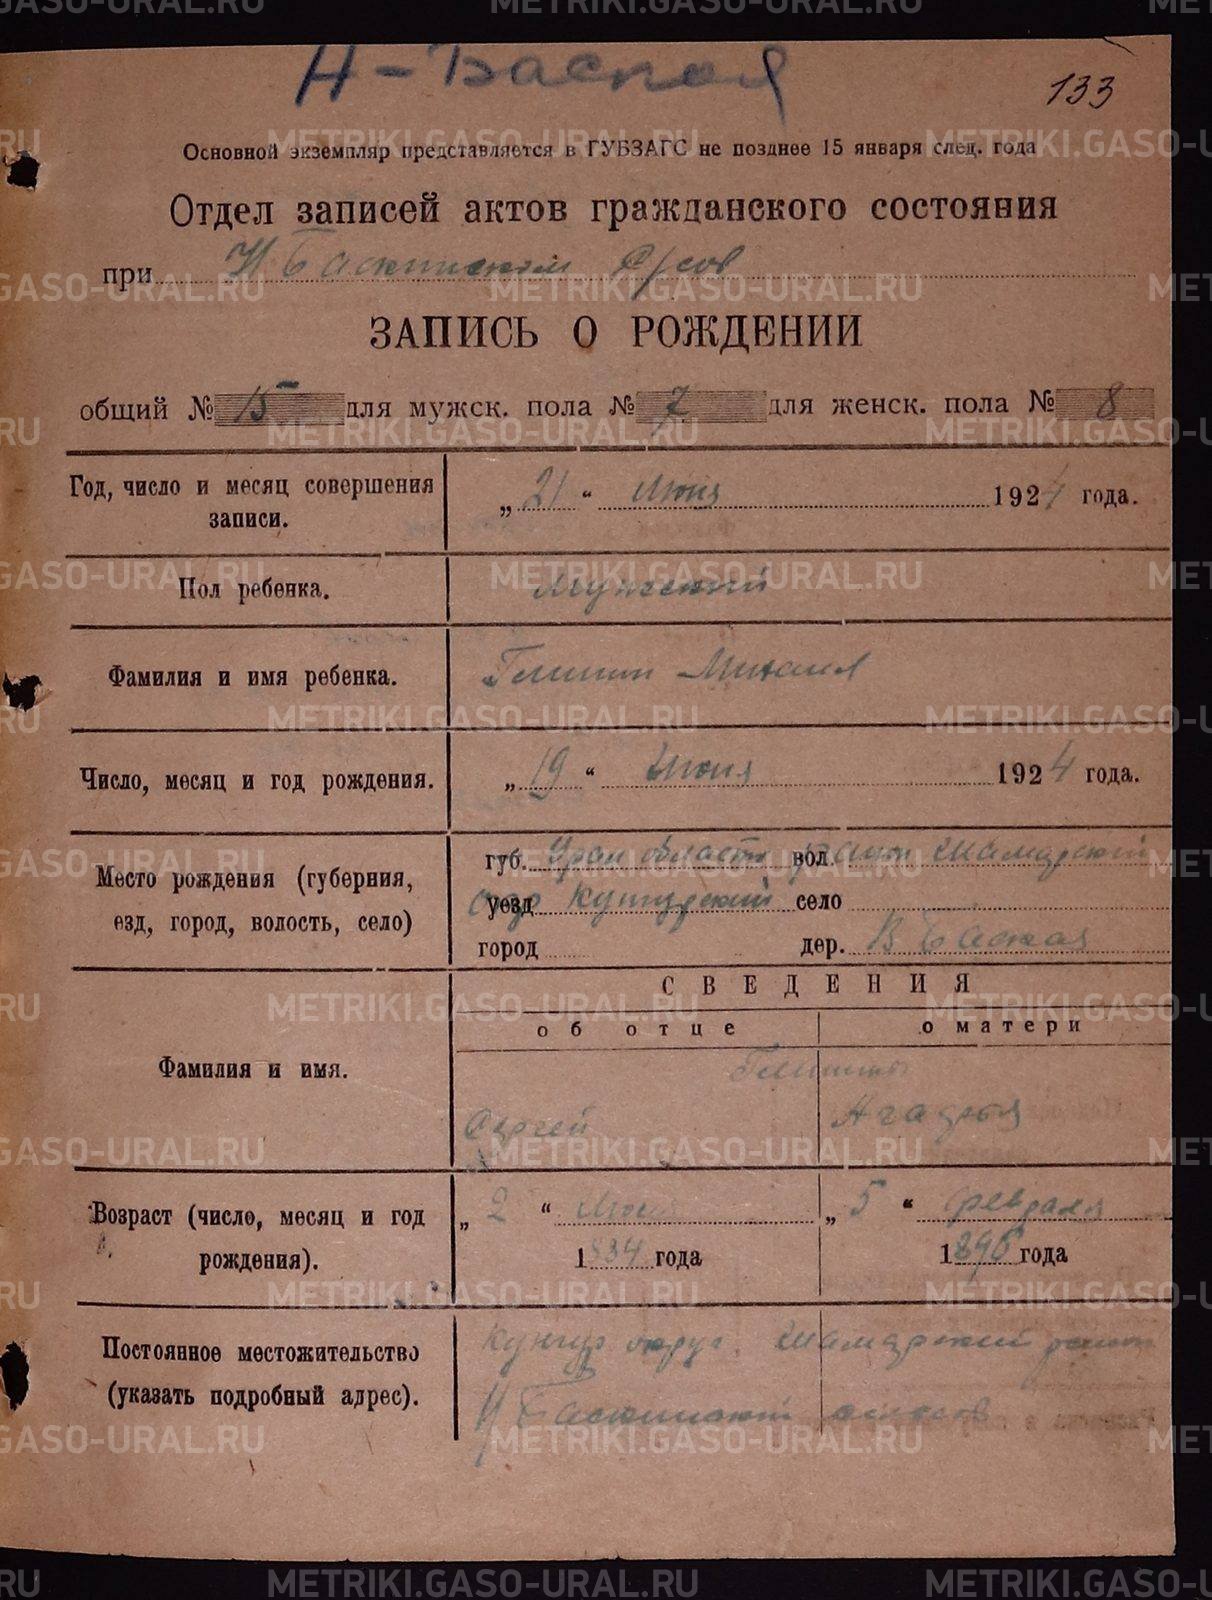 Н-Баская
133
Основной экземпляр представляется в ГУБЗАГС не позднее 15 января след. года
Отдел записей актов гражданского состояния
при Н Баскинском с/сов
ЗАПИСЬ О РОЖДЕНИИ
общий № 15 для мужск. пола № 7 для женск. пола № 8
Год, число и месяц совершения записи.
„ 21 “ Июня 1924 года.
Пол ребенка.
Мужской
Фамилия и имя ребенка.
Михаил
Число, месяц и год рождения.
„ 19 “ Июня 1924 года.
Место рождения (губерния,
езд, город, волость, село)
губ. Урал область вол. район Шамарский
уезд Кунгурский село
город дер. В Баская
СВЕДЕНИЯ
об отце
о матери
Фамилия и имя.
Сергей
Возраст (число, месяц и год
рождения).
„ 2 “ Июня
1 года
„ 5 “ февраля
1896 года
Постоянное местожительство
(указать подробный адрес).
Кунгур округ Шамарский район
Н Баскинский
METRIKI.GASO-URAL.RU